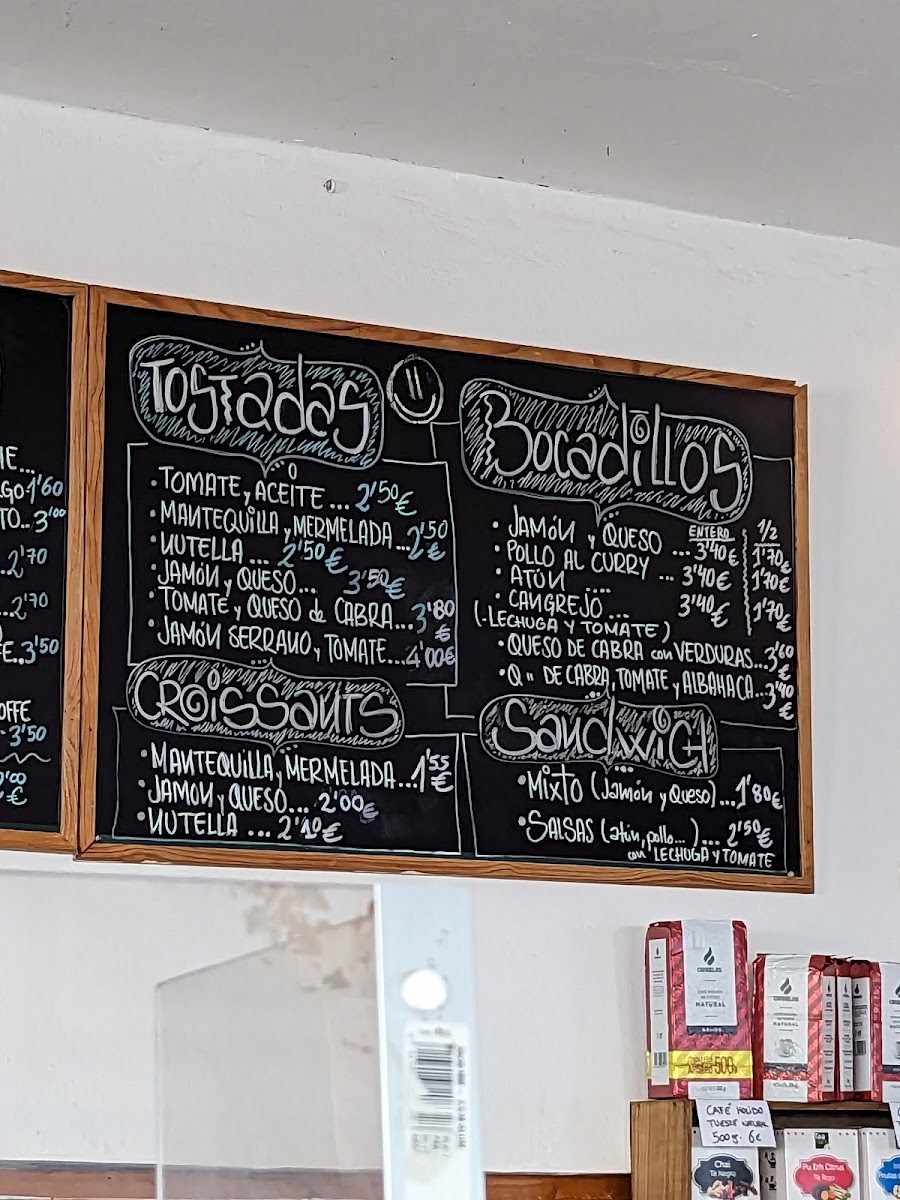 GO 1'60
TO.. 3'00
..2'70
...2'70
E..3'50
OFFE
3'50
€
Tostadas
• TOMATE y ACEITE ... 2'50€
• MANTEQUILLA y MERMELADA ... 2'50 €
• NUTELLA ... 2'50€
• JAMÓN y QUESO... 3'50€
• TOMATE y QUESO de CABRA... 3'80 €
• JAMÓN SERRANO y TOMATE... 4'00€
CROISSANTS
• MANTEQUILLA y MERMELADA... 1'55 €
• JAMON y QUESO... 2'00€
• NUTELLA ... 2'10€
Bocadillos
ENTERO 1/2
• JAMÓN y QUESO ... 3'40€ 1'70€
• POLLO AL CURRY ... 3'40€ 1'70€
• ATÚN ....
• CANGREJO ... 3'40€ 1'70€
(-LECHUGA Y TOMATE)
• QUESO DE CABRA con VERDURAS... 3'60 €
• Q" DE CABRA, TOMATE y ALBAHACA... 3'40 €
SandwicH
• MIXTO (Jamón y Queso)... 1'80€
• SALSAS (atún, pollo...)... 2'50€
con LECHUGA Y TOMATE
CANDELAS
NATURAL
500g
CANDELAS
NATURAL
CAFÉ MOLIDO
TUESTE NATURAL
500g. 6€
Chai
Té Negro
Pu Erh Citrus
Té Rojo